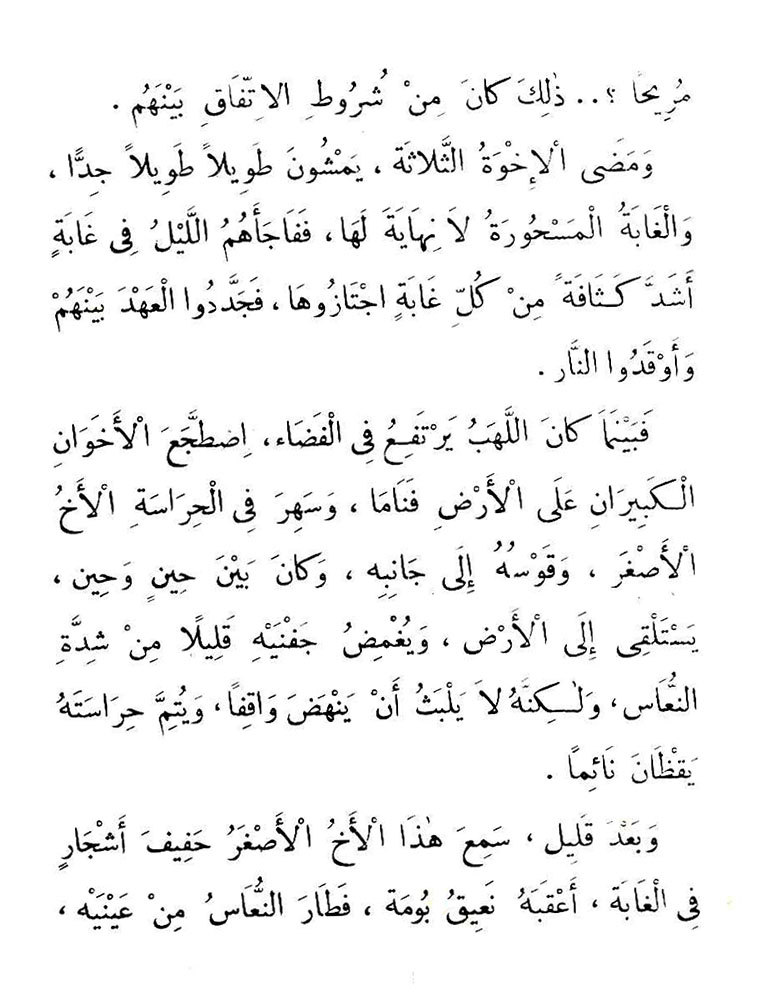 مُرِيحًا ؟.. ذٰلِكَ كَانَ مِنْ شُرُوطِ الِاتِّفَاقِ بَيْنَهُم .
وَمَضَى الْإِخْوَةُ الثَّلَاثَة ، يَمْشُونَ طَوِيلاً طَوِيلاً جِدًّا ،
وَالْغَابَةُ الْمَسْحُورَةُ لَا نِهَايَةَ لَهَا ، فَفَاجَأَهُمُ اللَّيْلُ فِى غَابَةٍ
أَشَدَّ كَثَافَةً مِنْ كُلِّ غَابَةٍ اجْتَازُوهَا ، فَجَدَّدُوا الْعَهْدَ بَيْنَهُمْ
وَأَوْقَدُوا النَّار .
فَبَيْنَمَا كَانَ اللَّهَبُ يَرْتَفِعُ فِى الْفَضَاء ، اِضطَّجَعَ الْأَخَوَانِ
الْكَبِيرَانِ عَلَى الْأَرْضِ فَنَامَا ، وَسَهِرَ فِى الْحِرَاسَةِ الْأَخُ
الْأَصْغَر ، وَقَوْسُهُ إِلَى جَانِبِه ، وَكَانَ بَيْنَ حِينٍ وَحِين ،
يَسْتَلْقِى إِلَى الْأَرْض ، وَيُغْمِضُ جَفْنَيْهِ قَلِيلًا مِنْ شِدَّةِ
النُّعَاس ، وَلٰكِنَّهُ لَا يَلْبَثُ أَنْ يَنْهَضَ وَاقِفًا ، وَيُتِمَّ حِرَاسَتَهُ
يَقْظَانَ نَائِماً .
وَبَعْدَ قَلِيل ، سَمِعَ هٰذَا الْأَخُ الْأَصْغَرُ حَفِيفَ أَشْجَارٍ
فِى الْغَابَة ، أَعْقَبَهُ نَعِيقُ بُومَة ، فَطَارَ النُّعَاسُ مِنْ عَيْنَيْه ،